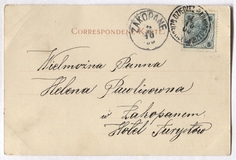 CORRESPONDENZ-KARTE.
ZAKOPANE
Wielmożna Panna
Helena Pawlicowna
w Zakopanem
Hotel Turystów